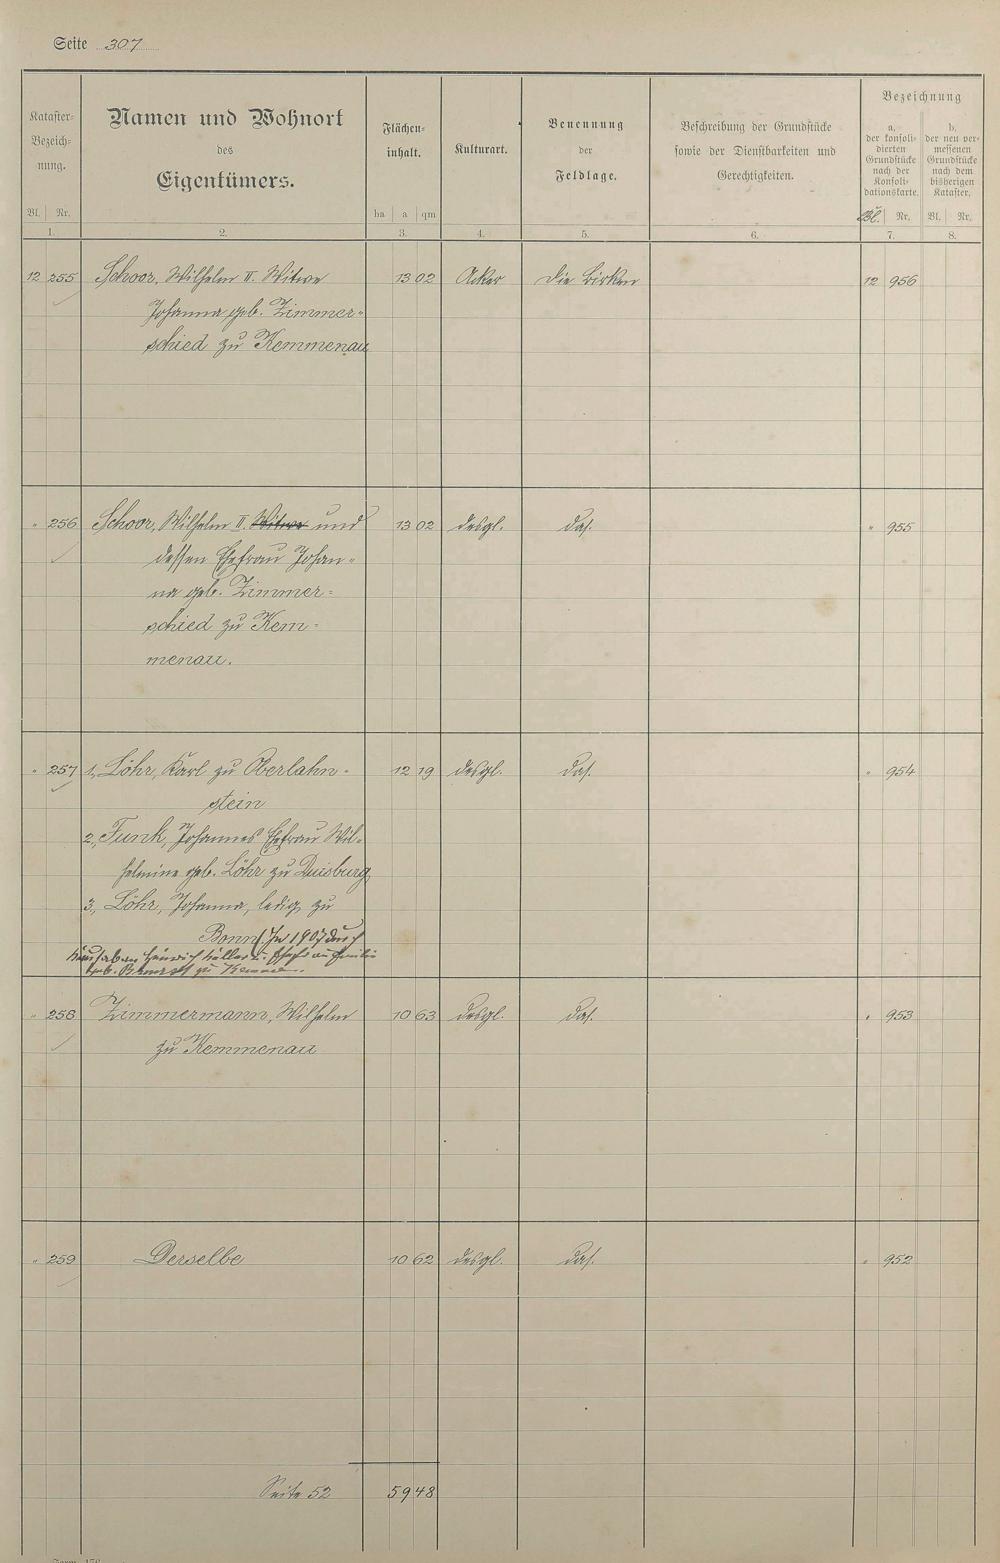 Seite 307
Kataster-
Bezeich-
nung.
Namen und Wohnort
des
Eigentümers.
Flächen-
inhalt.
Kulturart.
Benennung
der
Feldlage.
Beschreibung der Grundstücke
sowie der Dienstbarkeiten und
Gerechtigkeiten.
Bezeichnung
a.
der konsoli-
dierten
Grundstücke
nach der
Konsoli-
dationskarte.
b.
der neu ver-
messenen
Grundstücke
nach dem
bisherigen
Kataster.
Bl. Nr. ha a qm Bl. Nr. Bl. Nr.
1. 2. 3. 4. 5. 6. 7. 8.
12 255 Schoor, Wilhelm II. Witwe 13 02 Acker Die Birken 12 956
Johanna geb. Zimmer-
schied zu Kemmenau
" 256 Schoor, Wilhelm II. Witwe und 13 02 desgl. das. " 955
dessen Ehefrau Johan-
na geb. Zimmer-
schied zu Kem-
menau.
" 257 1., Löhr, Karl zu Oberlahn- 12 19 desgl. das. " 954
stein
2., Funk, Johannes Ehefrau Wil-
helmine geb. Löhr zu Duisburg
3., Löhr, Johanna, ledig zu
Bonn In 1907 durch
Heinrich
geb. zu
" 258 Zimmermann, Wilhelm 10 63 desgl. das. " 953
zu Kemmenau
" 259 Derselbe 10 62 desgl. das. " 952
Seite 52 59 48